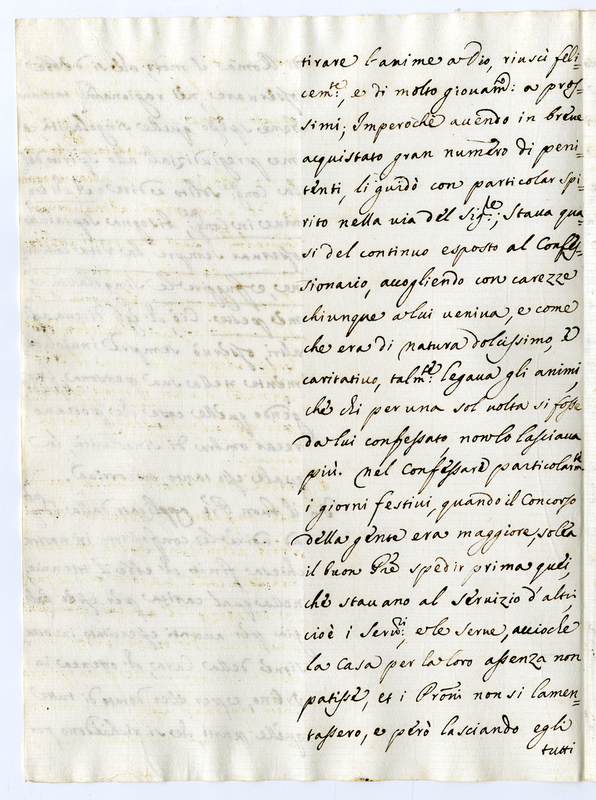 tirare l'anime a Dio, riuscì feli=
cem:te, e di molto giovam:to a pros=
simi; Imperochè avendo in breve
acquistato gran numero di peni=
tenti, li guidò con particolar spi=
rito nella via del Sig:re; Stava qua=
si del continuo esposto al Confes=
sionario, accogliendo con carezze
chiunque a lui veniva, e come
che era di natura dolcissimo, e
caritativo, talm:te legava gli animi,
che chi per una sol volta si fosse
da lui confessato non lo lasciava
più. Nel Confessare particolarm:te
i giorni festivi, quando il Concorso
della gente era maggiore, solea
il buon Pre spedir prima quei,
che stavano al servizio d'altri,
cioè i Serv:ri, e le Serve, acciochè
la Casa per la loro assenza non
patisse, et i Proni non si lamen=
tassero, e però lasciando egli
tutti